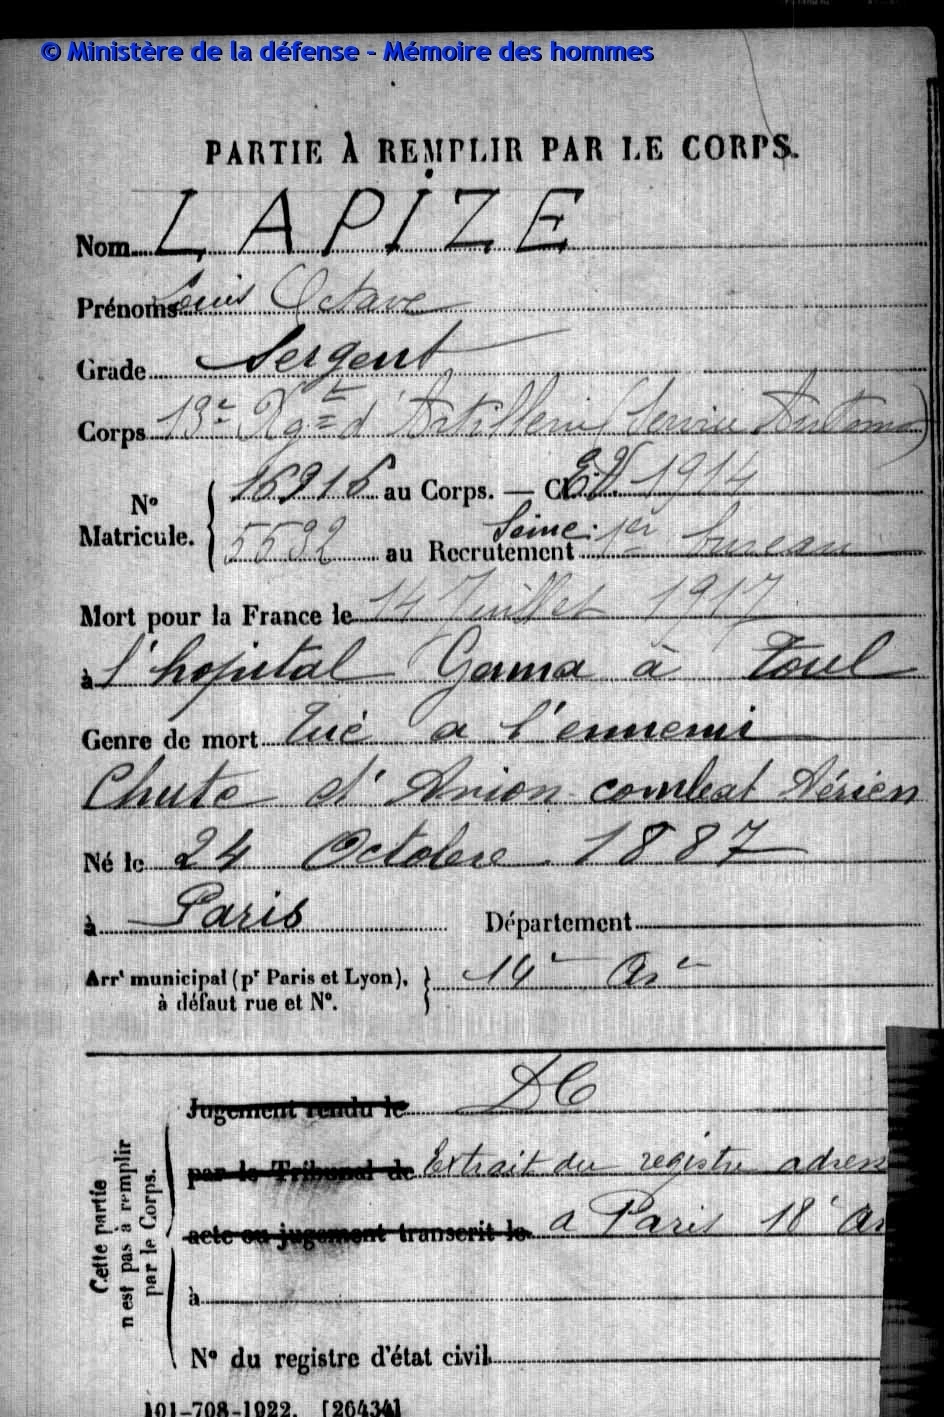 © Ministère de la défense - Mémoire des hommes
PARTIE À REMPLIR PAR LE CORPS.
Nom LAPIZE
Prénoms Louis Octave
Grade Sergent
Corps 13e Rgt d'Artillerie (Service Autom)
No Matricule. { 16916 au Corps. — Cl. E.V. 1914
5532 au Recrutement Seine. 1er bureau
Mort pour la France le 14 Juillet 1917
à l'hopital Gama à Toul
Genre de mort Tué a l'ennemi
Chute d'Avion combat Aérien
Né le 24 Octobre 1887
à Paris Département
Arrt municipal (pr Paris et Lyon), à défaut rue et No. } 14e Arr
Cette partie n'est pas à remplir par le Corps.
Jugement rendu le DC
par le Tribunal de Extrait du registre adressé
acte ou jugement transcrit le a Paris 18e Ar
à
No du registre d'état civil
101-708-1922. [26434]